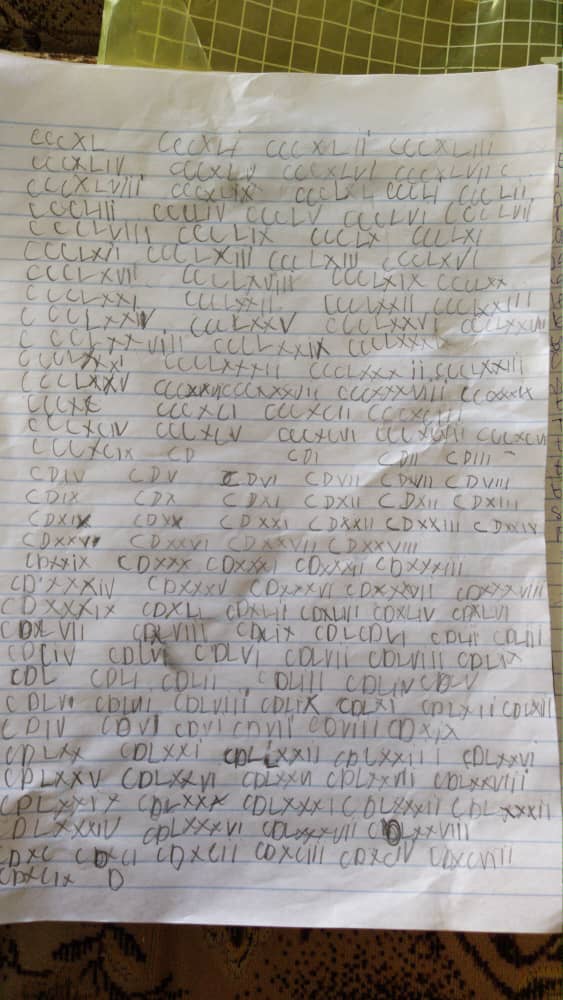 CCCXL CCCXLi CCCXLii CCCXLIII
CCCXLIV CCCXLV CCCXLVI CCCXLVII C
CCCXLVIII CCCXLIX CCCLI CCCLII
CCCLIII CCCLIV CCCLV CCCLVI CCCLVII
CCCLVIII CCCLIX CCCLX CCCLXI
CCCLXII CCCLXIII CCCLXIII CCCLXVI
CCCLXVII CCCLXVIII CCCLXIX CCCLXX
CCCLXXI CCCLXXII CCCLXXII CCCLXXIII
CCCLXXIV CCCLXXV CCCLXXVI CCCLXXVII
CCCLXXVIII CCCLXXIX CCCLXXX
CCCLXXXI CCCLXXXII CCCLXXXii CCCLXXIII
CCCLXXV CCCXXVI CCCXXXVII CCCXXXVIII CCCXXXIX
CCCXC CCCXCI CCCXCII CCCXCIII
CCCXCIV CCCXCV CCCXCVI CCCXCVII
CCCXCIX CD CDI CDII CDIII
CDIV CDV CDVI CDVII CDVII CDVIII
CDIX CDX CDXI CDXII CDXII CDXIII
CDXIX CDXX CDXXI CDXXII CDXXIII CDXXIX
CDXXVI CDXXVI CDXXVII CDXXVIII
CDXXIX CDXXX CDXXXI CDXXXI CDXXXIII
CDXXXIV CDXXXV CDXXXVI CDXXXVII CDXXXVIII
CDXXXIX CDXLI CDXLII CDXLIII CDXLIV CDXLVI
CDXLVII CDXLVIII CDXLIX CDLCDVI CDLII CDLIII
CDLIV CDLVI CDLVI CDLVII CDLVIII CDLIX
CDL CDLI CDLII CDLIII CDLIV CDLV
CDLVI CDLVI CDLVIII CDLIX CDLXI CDLXII CDLXII
CDIV CDVI CDVI CDVII CDVIII CDXIX
CDLXX CDLXXI CDLXXII CDLXXIII CDLXXVI
CDLXXV CDLXXVI CDLXXVI CDLXXVII CDLXXVIII
CDLXXIX CDLXXX CDLXXXI CDLXXXII CDLXXXII
CDLXXXIV CDLXXXVI CDLXXXVII CDLXXVIII
CDXC CDXCI CDXCII CDXCIII CDXCIV CDXCVIII
CDXCIX D